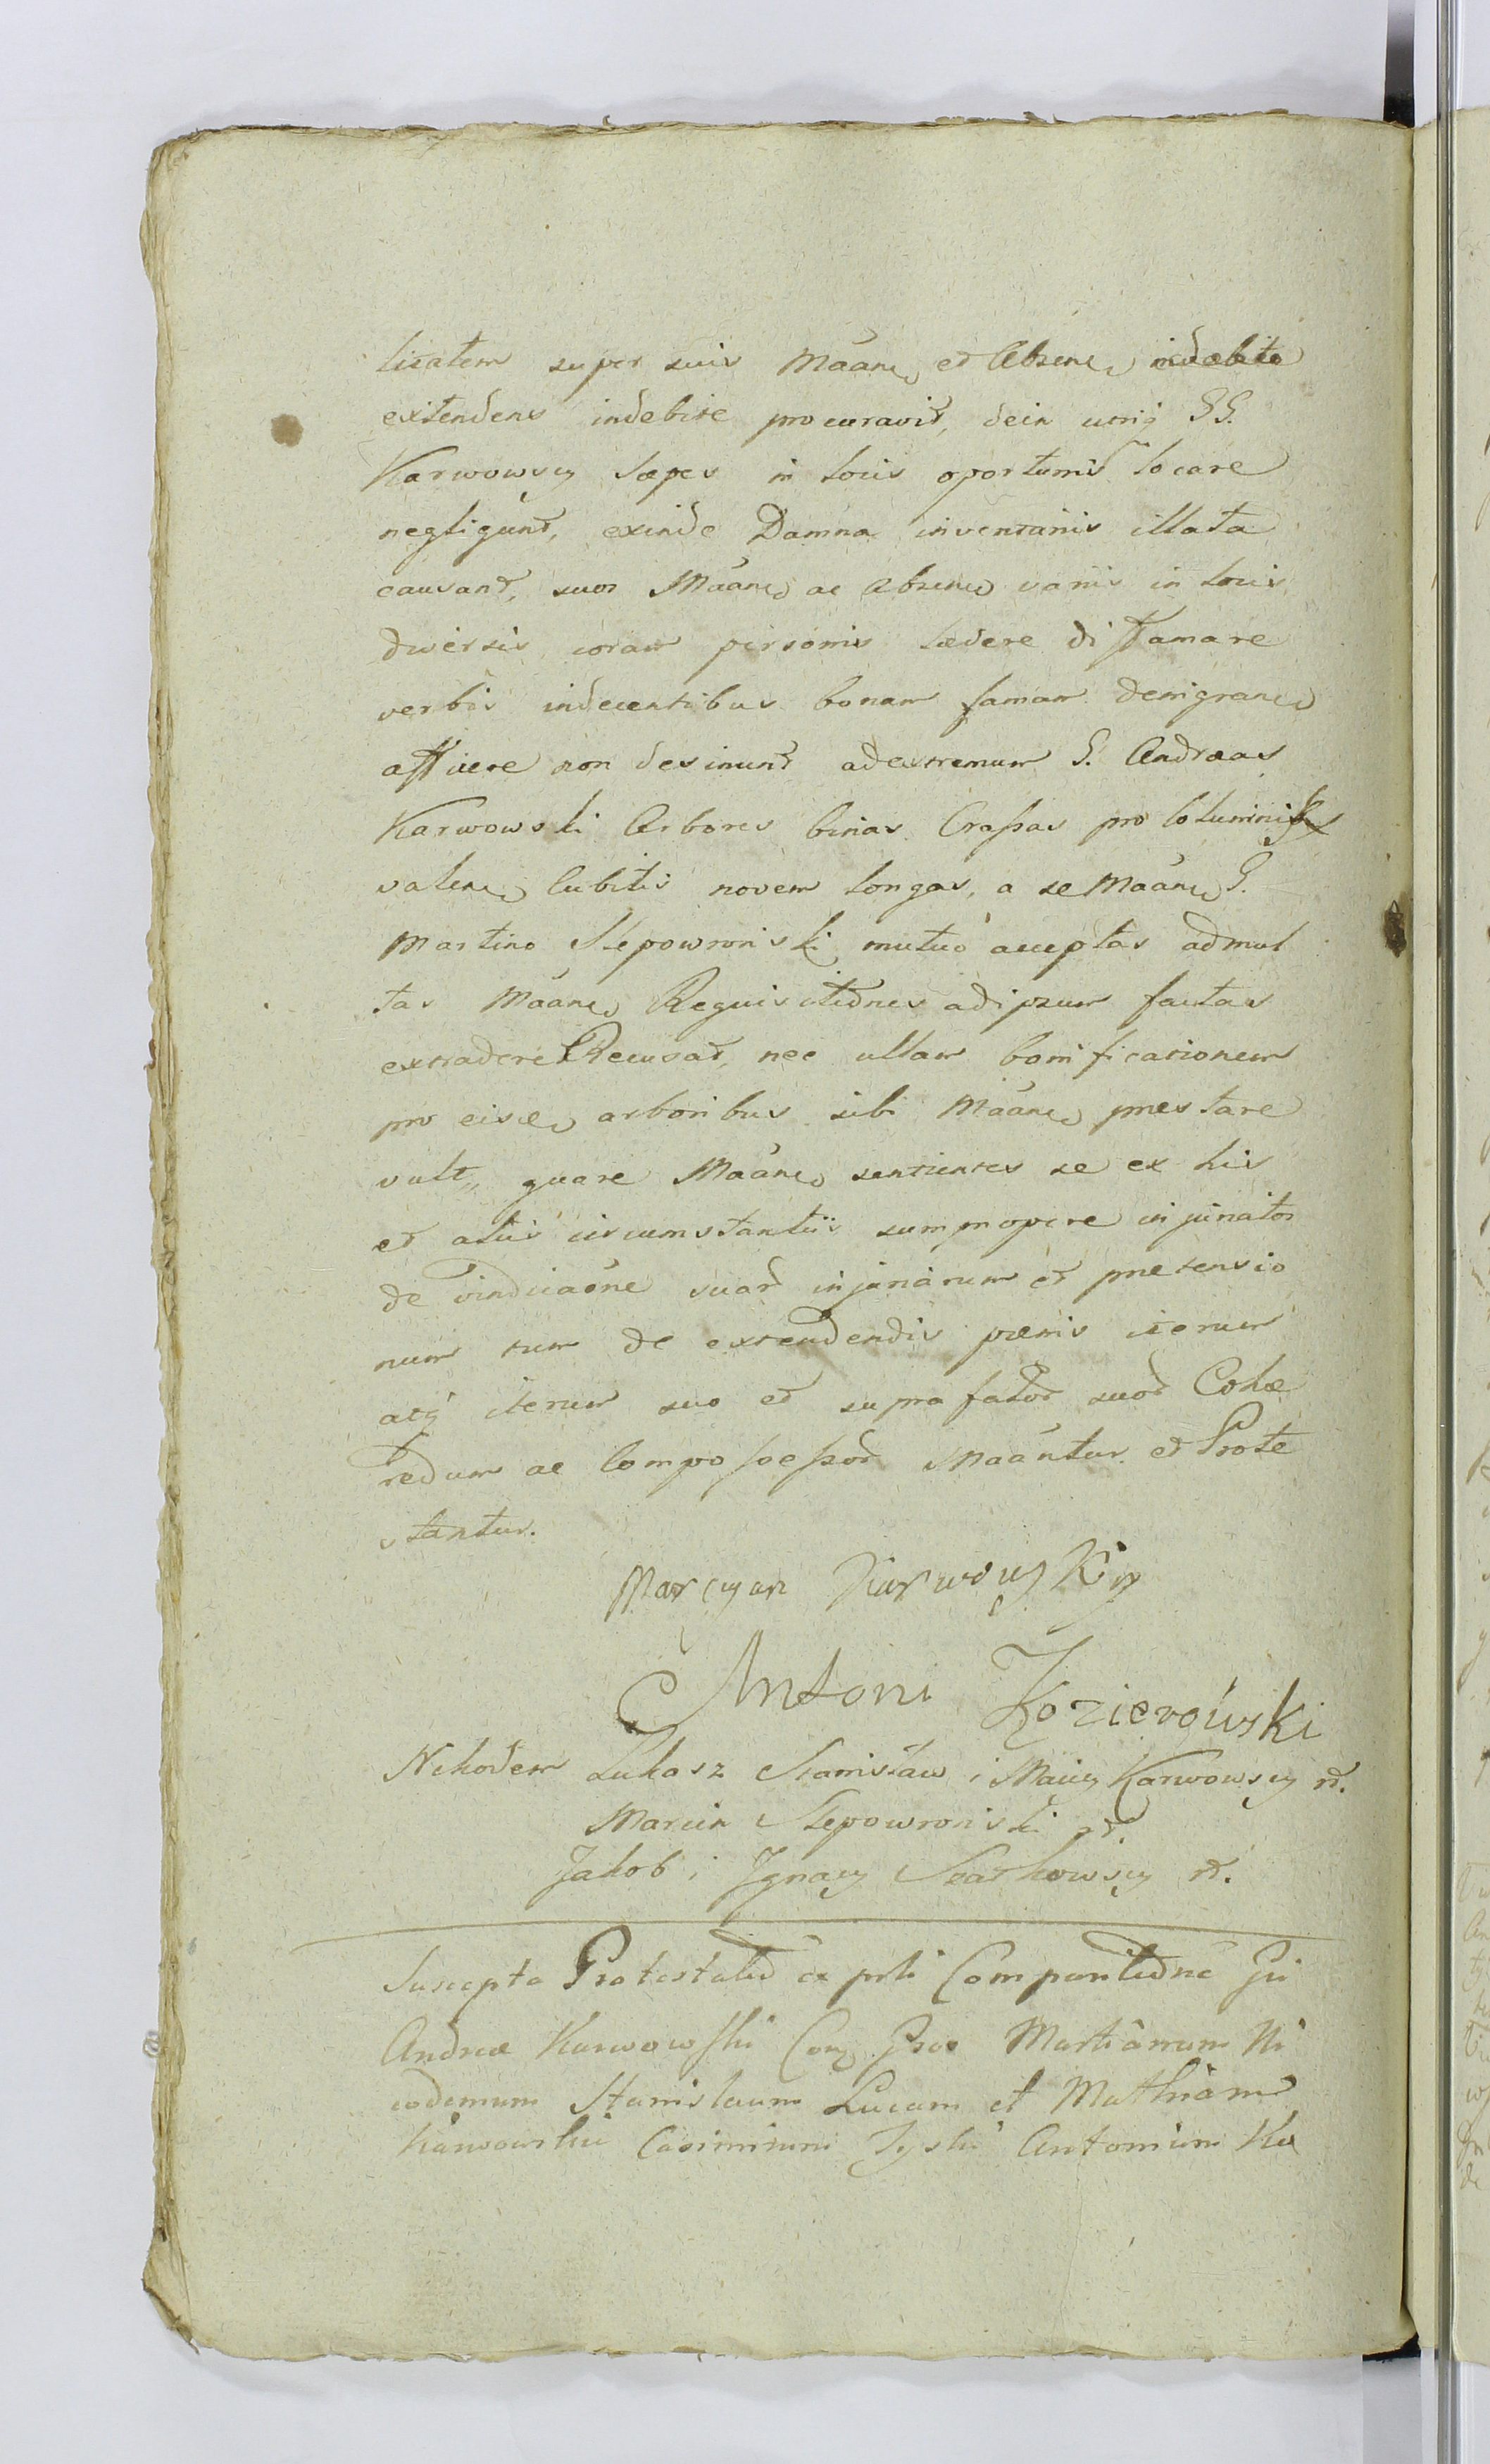 licatem super suis Maānt et Absent indebite
extendens indebite procuravit, dein uterq GG.
Karwowscy sæpes in locis oportunis locare
negligunt, exinde Damna inventariis illata
causant, suos Maānt ac Absent variis in locis
diversis coram personis lædere diffamare
verbis indecentibus bonam famam denigrant
afficere non desinunt adextremum G. Andreas
Karwowski Arbores binas Crassas pro Columnis
valent Cubitis novem longas, a se Maānt G.
Martino Slepowronski mutuo acceptas admul
tas Maānt Requisitiones adipsum factas
extradere Recusat, nec ullam bonificationem
pro eisd arboribus sibi Maānt præstare
vult, quare Maānt sentientes se ex his
et aliis circumstantiis summopere injuriatos
de vindicaōne suar injuriarum et prætensio
num tum de extendendis pœnis iterum
atq iterum suo et suprafator suor Cohæ
redum ac Compossessor Maāntur et Prote
stantur.
Marcyan Karwowski
Antoni Kozierowski
Nikodem Łukasz Stanisław i Maciej Karwowscy
Marcin Slepowronski
Jakob i Ignacy
Suscepta Protestatio ex prti Comparitione Gsi
Andreæ Karwowski Cong Gsos Martianum Ni
codemum Stanislaum Lucam et Mathiam
Karwowskie Casimirum Antonium Ko